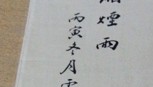 煙雨
丙寅冬月